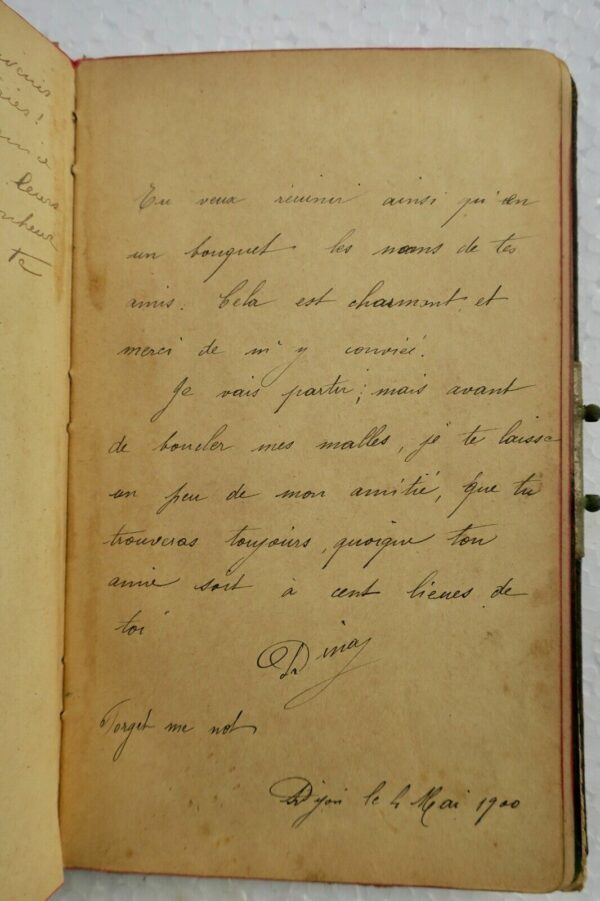 venirs
!
leurs
bonheur
te
Tu veux réunir ainsi qu'en
un bouquet les noms de tes
amis. Cela est charmant et
merci de m'y convier.
Je vais partir; mais avant
de boucler mes malles, je te laisse
un peu de mon amitié, que tu
trouveras toujours, quoique ton
amie soit à cent lieues de
toi
Dinay
Forget me not
Dijon le 4 Mai 1900